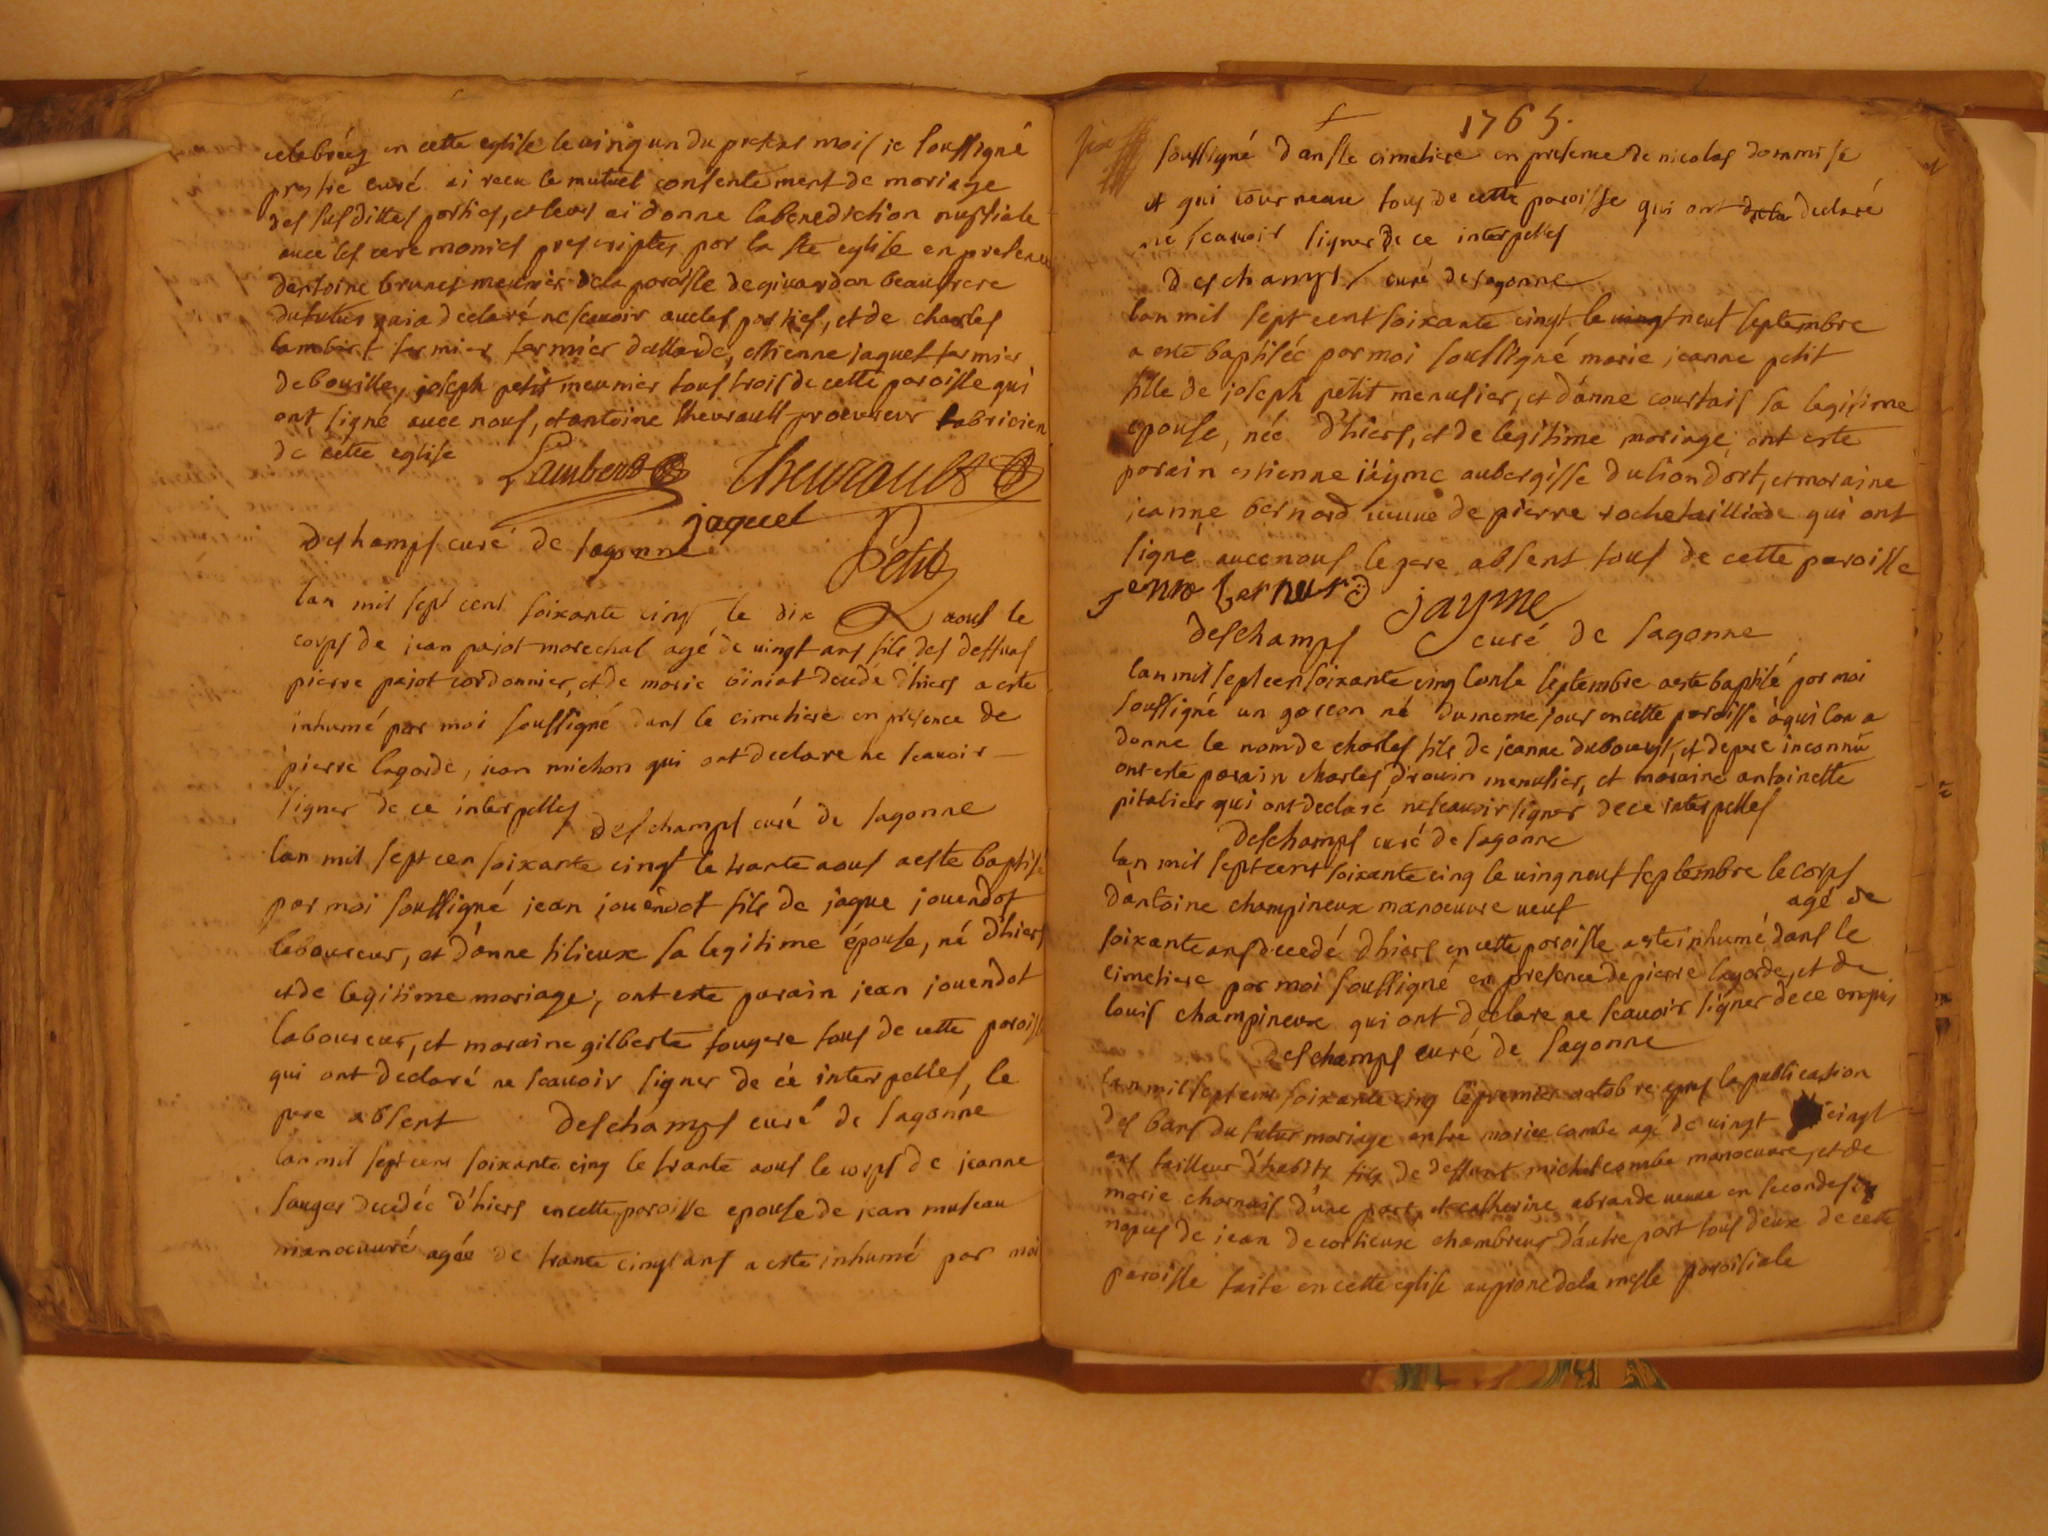 celebréez en cette eglise le vingt un du present mois je soussigné
prestre curé ai receu le mutuel consentement de mariage
des susdittes parties, et leurs ai donne la benediction nuptiale
avec les ceremonies prescriptes par la ste eglise en presence
dantoine brunet meunier dela paroisse de givardon beaufrere
du futur qui a declaré ne scavoir avec les parties, et de charles
lambert fermier dallarde, estienne jaquet fermier
de bouilles, joseph petit meunier tous trois de cette paroisse qui
ont signé avec nous, et antoine theurault procureur fabricien
de cette eglise
Lambert Theurault
jaquet
Deshamps curé de sagonne
Petit
lan mil sept cent soixante cinq le dix aous le
corps de jean pajot marechal agé de vingt ans fils des deffuns
pierre pajot cordonnier, et de marie decedé d'hiers a este
inhumé par moi soussigné dans le cimetiere en presence de
pierre lagarde, jean michon qui ont declare ne scavoir
signer de ce interpelles
deschamps curé de sagonne
lan mil sept cen soixante cinq le trante aous a este baptisé
par moi soussigné jean jouendot fils de jaque jouendot
laboureur, et d'anne filieux sa legitime épouse, né d'hiers
et de legitime mariage, ont este parain jean jouendot
laboureur, et maraine gilberte fougere tous de cette paroisse
qui ont declaré ne scavoir signer de ce interpelles, le
pere absent deschamps curé de sagonne
lan mil sept cens soixante cinq le trante aous le corps de jeanne
sauger decedée d'hiers en cette paroisse epouse de jean museau
manoeuvré agée de trante cinq ans a este inhumé par moi
1765.
soussigné dans le cimetiere en presence de nicolas dommise
et gui tourneau tous de cette paroisse qui ont declaré
ne scavoir signer de ce interpelles
deschamps curé de sagonne
lan mil sept cent soixante cinq le vingt neuf septembre
a este baptisée par moi soussigné marie jeanne petit
fille de joseph petit menusier, et d'anne courtais sa legitime
epouse, née d'hiers, et de legitime mariage ont este
parain estienne iayme aubergisse du lion dort, et maraine
jeanne bernard veuve de pierre rochetailliade qui ont
signé avec nous le pere absent tous de cette paroisse
jenne bernard jayme
deschamps curé de sagonne
lan mil sept cen soixante cinq lonse septembre a este baptisé par moi
soussigné un garcon né du meme jour en cette paroisse à qui lon a
donné le nom de charles fils de jeanne dubourgt, et de pere inconnu
ont este parain charles drouin menusier, et maraine antoinette
pitalier qui ont declaré ne scavoir signer de ce interpelles
deschamps curé de sagonne
lan mil sept cent soixante cinq le vingneuf septembre le corps
d'antoine champineux manoeuvre veuf agé de
soixante ans decedé d'hiers en cette paroisse a este inhumé dans le
cimetiere par moi soussigné en presence de pierre lagarde, et de
louis champineux qui ont declare ne scavoir signer de ce enquis
deschamps curé de sagonne
lan mil sept cens soixante cinq le premier octobre apres la publication
des bans du futur mariage entre combe agé de vingt cinqt
ans tailleur d'habits fils de deffunt michel combe manoeuvre, et de
marie charnais d'une part et catherine abrande veuve en secondes
nopces de jean decortieux chambreur d'autre part tous deux de cette
paroisse faite en cette eglise au prone de la messe paroisiale